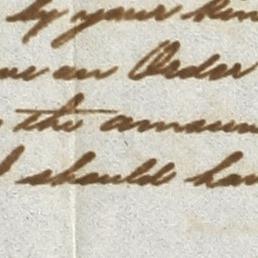 by your kin
ve an Order
the amoun
I should hav